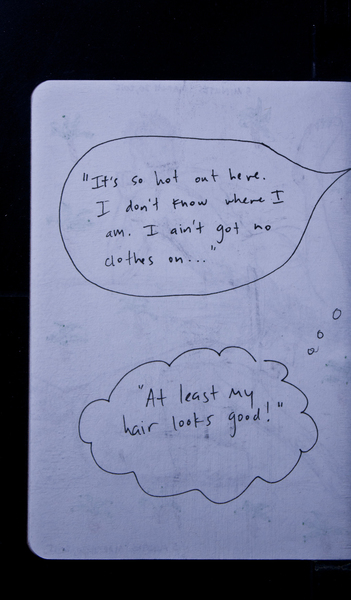 "It's so hot out here.
I don't know where I
am. I ain't got no
clothes on..."
"At least my
hair looks good!"